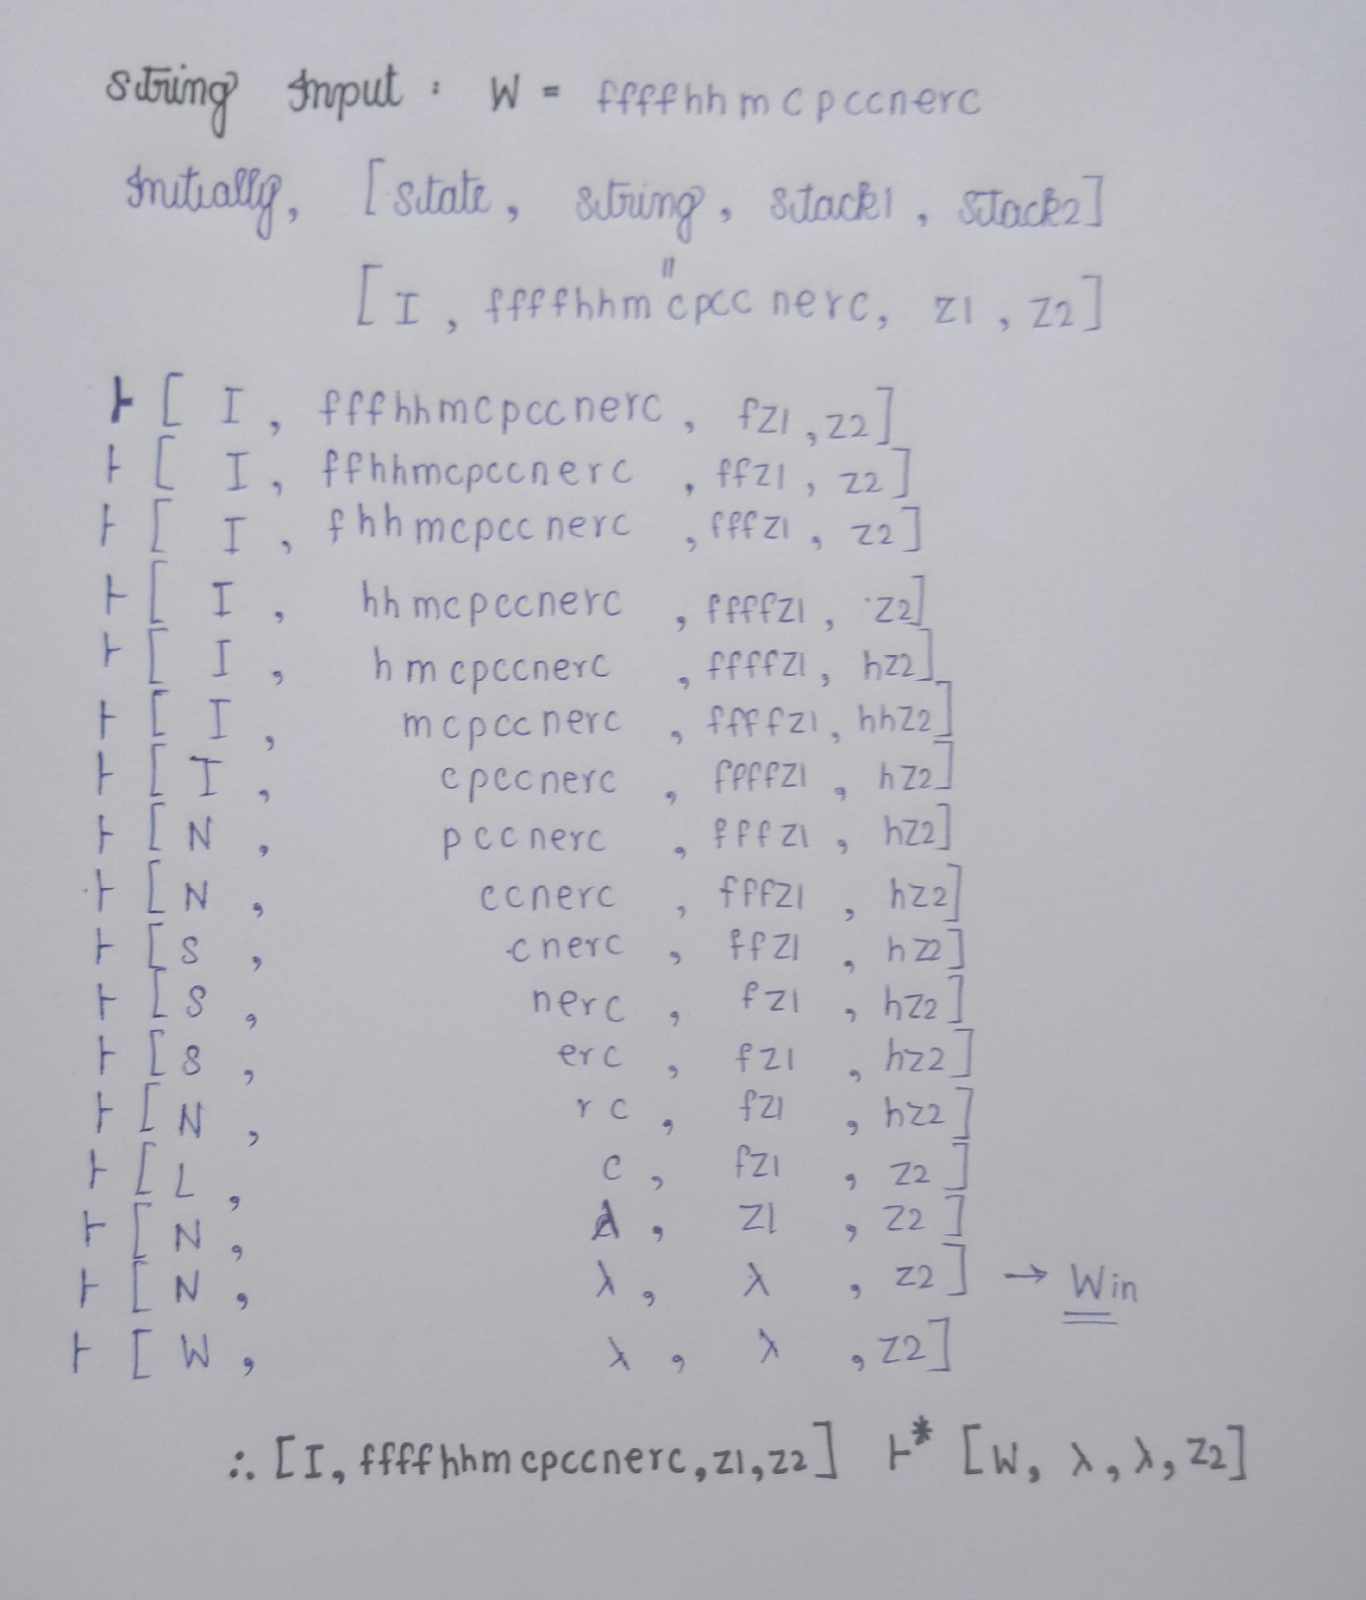 String Input : W = ffffhhmcpccnerc
Initially, [state, string, stack1, stack2]
"
[I, ffffhhmcpccnerc, z1, z2]
⊢ [ I, fffhhmcpccnerc, fz1, z2]
⊢ [ I, ffhhmcpccnerc, ffz1, z2]
⊢ [ I, fhhmcpccnerc, fffz1, z2]
⊢ [ I, hhmcpccnerc, ffffz1, z2]
⊢ [ I, hmcpccnerc, ffffz1, hz2]
⊢ [ I, mcpccnerc, ffffz1, hhz2]
⊢ [ I, cpccnerc, ffffz1, hz2]
⊢ [ N, pccnerc, fffz1, hz2]
⊢ [ N, ccnerc, fffz1, hz2]
⊢ [ S, cnerc, ffz1, hz2]
⊢ [ S, nerc, fz1, hz2]
⊢ [ S, erc, fz1, hz2]
⊢ [ N, rc, fz1, hz2]
⊢ [ L, c, fz1, z2]
⊢ [ N, λ, z1, z2]
⊢ [ N, λ, λ, z2] → Win
⊢ [ W, λ, λ, z2]
∴ [I, ffffhhmcpccnerc, z1, z2] ⊢* [W, λ, λ, z2]